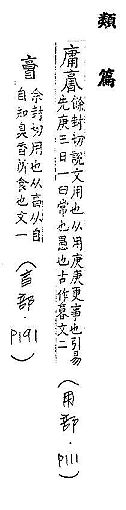 類篇
庸
餘封切說文用也从用庚庚更事也引易
先庚三日一曰常也愚也古作文二
(用部．P111)
余封切用也从亯从自
自知臭香所食也文一
(亯部．P191)